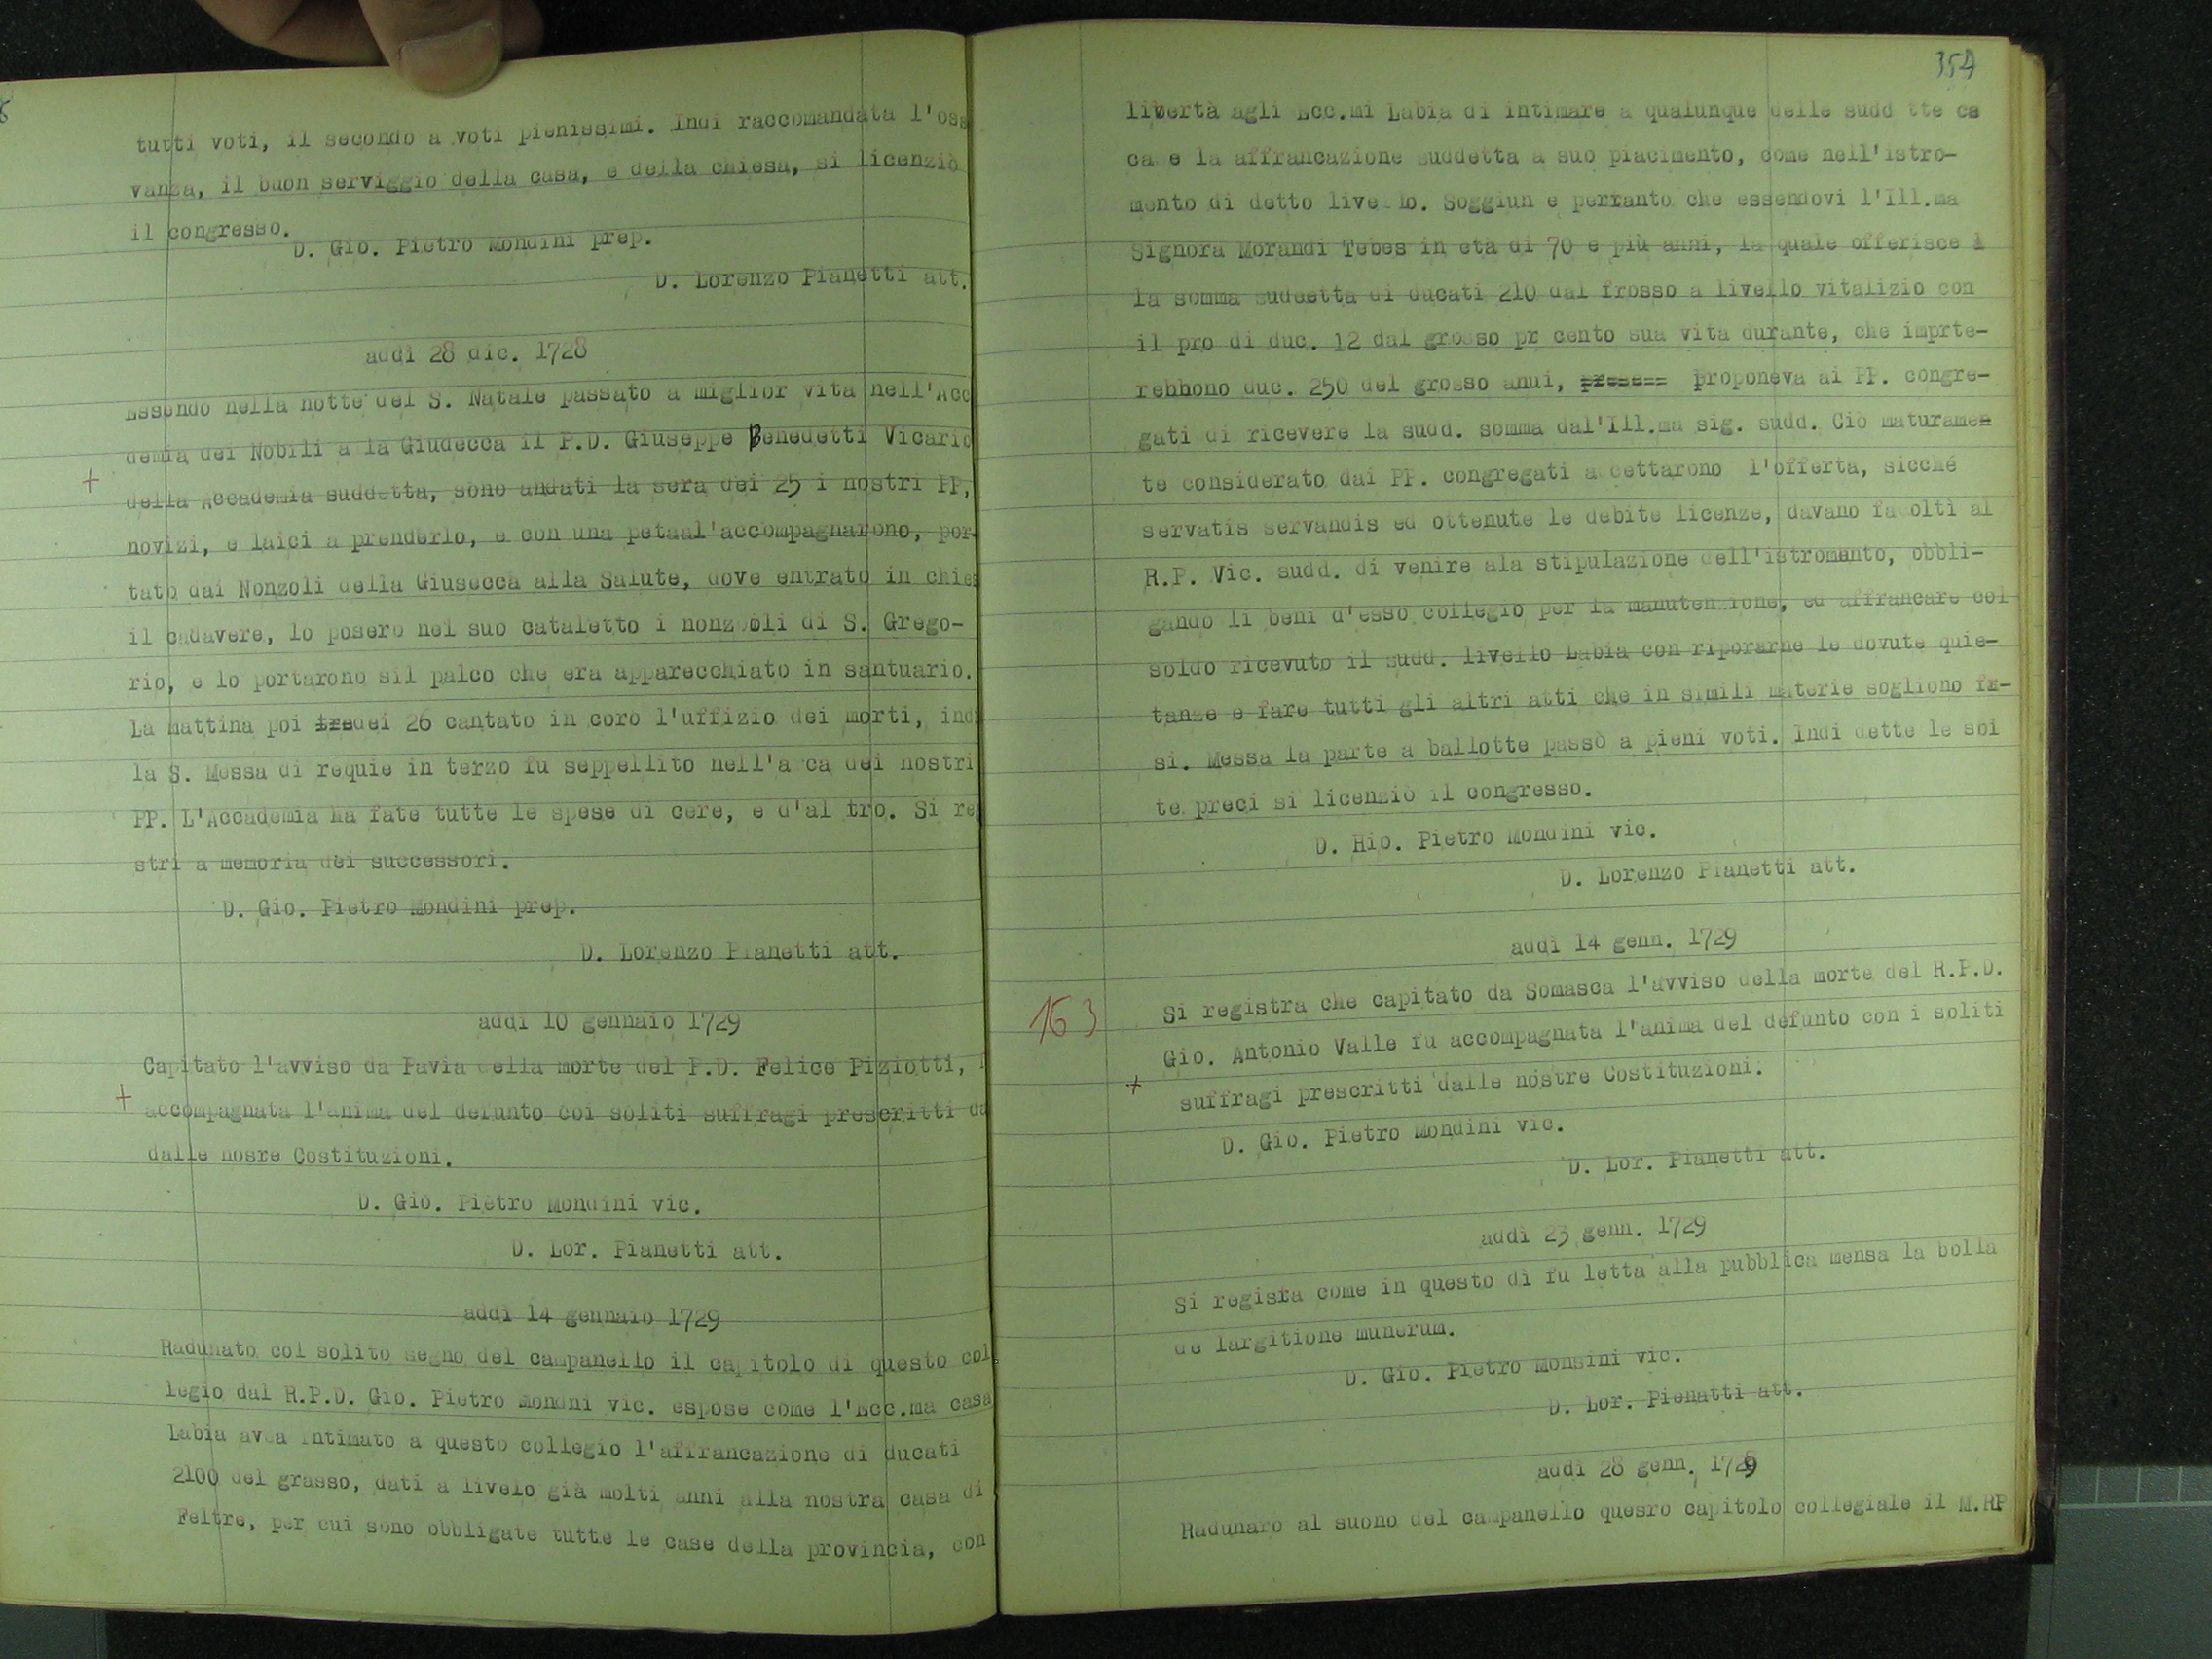 tutti voti, il secondo a voti pienissimi. Indi raccomandata l'oss
vanza, il buon serviggio della casa, e della chiesa, si licenziò
il congresso.
D. Gio. Pietro Mondini prep.
D. Lorenzo Pianetti att.
addì 28 dic. 1728
Essendo nella notte del S. Natale passato a miglior vita nell'Acc
demia dei Nobili a la Giudecca il P.D. Giuseppe Benedetti Vicario
+ della Accademia suddetta, sono andati la sera dei 25 i nostri PP,
novizi, e laici a prenderlo, e con una petaal'accompagnarono, por
tato dai Nonzoli della Giusecca alla Salute, dove entrato in chies
il cadavere, lo posero nel suo cataletto i nonzoli di S. Grego-
rio, e lo portarono sil palco che era apparecchiato in santuario.
La mattina poi dei 26 cantato in coro l'uffizio dei morti, indi
la S. Messa di requie in terzo fu seppellito nell'a ca dei nostri
PP. L'Accademia ha fate tutte le spese di cere, e d'al tro. Si re
stri a memoria dei successori.
D. Gio. Pietro Mondini prep.
D. Lorenzo Pianetti att.
addì 10 gennaio 1729
Capitato l'avviso da Pavia della morte del P.D. Felice Piziotti,
+ accompagnata l'anima del defunto coi soliti suffragi prescritti da
dalle nosre Costituzioni.
D. Gio. Pietro Mondini vic.
D. Lor. Pianetti att.
addì 14 gennaio 1729
Radunato col solito segno del campanello il capitolo di questo col
legio dal R.P.D. Gio. Pietro Mondni vic. espose come l'Ecc.ma casa
Labia avea intimato a questo collegio l'affrancazione di ducati
2100 del grasso, dati a livelo già molti anni alla nostra casa di
Feltre, per cui sono obbligate tutte le case della provincia, con
354
libertà agli Ecc.mi Labia di intimare a qualunque delle sudd tte ca
ca e la affrancazione suddetta a suo piacimento, come nell'istro-
mento di detto live lo. Soggiun e pertanto che essendovi l'Ill.ma
Signora Morandi Tebes in età di 70 e più anni, la quale offerisce
la somma suddetta di ducati 210 dal frosso a livello vitalizio con
il pro di duc. 12 dal grosso pr cento sua vita durante, che imprte-
rebbono duc. 250 del grosso anui, proponeva ai PP. congre-
gati di ricevere la sudd. somma dal'Ill.ma sig. sudd. Ciò maturamen
te considerato dai PP. congregati accettarono l'offerta, sicché
servatis servandis ed ottenute le debite licenze, davano facoltì al
R.P. Vic. sudd. di venire ala stipulazione dell'istromento, obbli-
gando li beni d'esso collegio per la manutenzione, ed affrancare col
soldo ricevuto il sudd. livello Labia con riporarne le dovute quie-
tanze e fare tutti gli altri atti che in simili materie sogliono fr-
si. Messa la parte a ballotte passò a pieni voti. Indi dette le sol
te preci si licenziò il congresso.
D. Hio. Pietro Mondini vic.
D. Lorenzo Pianetti att.
addì 14 genn. 1729
163 Si registra che capitato da Somasca l'avviso della morte del R.P.D.
Gio. Antonio Valle fu accompagnata l'anima del defunto con i soliti
+ suffragi prescritti dalle nostre Costituzioni.
D. Gio. Pietro Mondini vic.
D. Lor. Pianetti att.
addì 23 genn. 1729
Si registra come in questo dì fu letta alla pubblica mensa la bolla
de largitione munerum.
D. Gio. Pietro Monsini vic.
D. Lor. Pienatti att.
addì 28 genn. 1729
Radunaro al suono del campanello quesro capitolo collegiale il M.RP